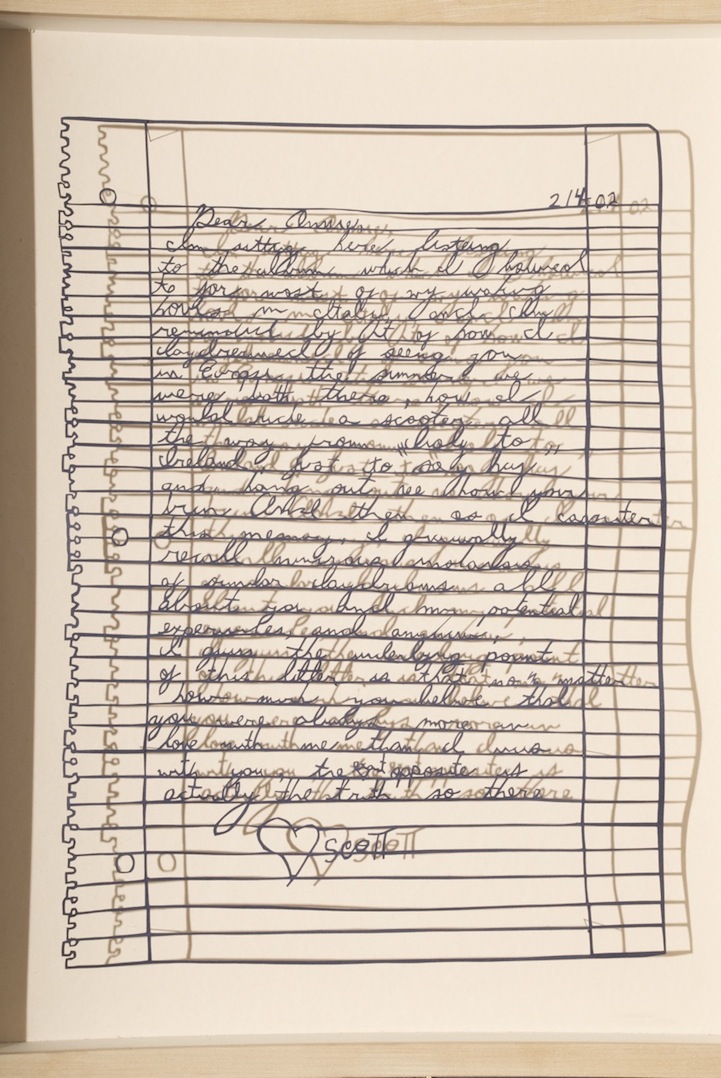 2/4 02
Dear Annie,
Im sitting here listening
to the album which I listened
to for most of my waking
hours in Italy and Im
reminded by it of how I
daydreamed of seeing you
in Europe the summer we
were both there how I
would ride a scooter all
the way from Italy to
Ireland just to say hey
and hang out see how you
been And then as I
this memory, I
recall
of similar daydreams all
about you and my potential
experiences, and
I guess the underlying point
of this letter is that no matter
how much you believe that
you were always more in
love with me than I was
with you, the opposite is
actually the truth so there
Scott